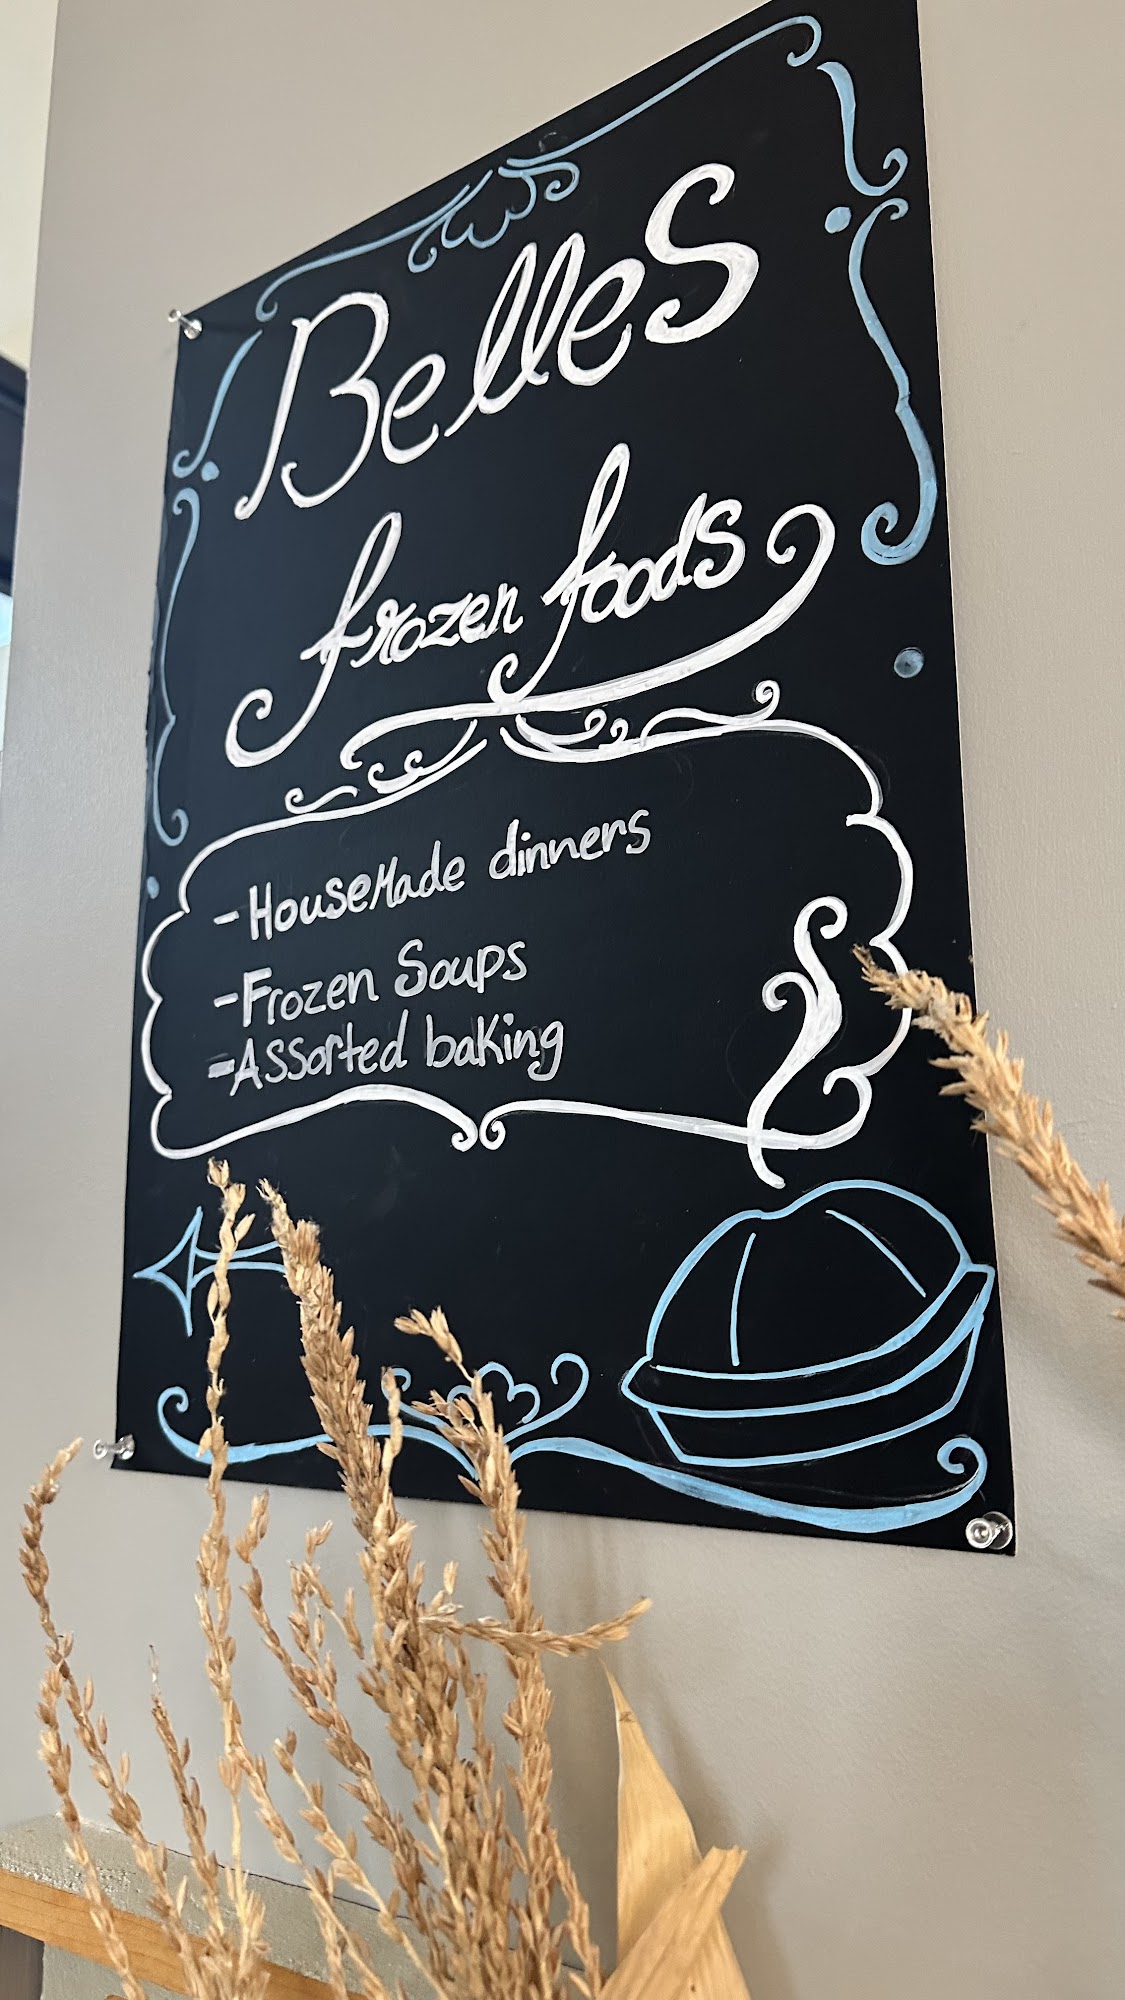 Belles
frozen foods
- HouseMade dinners
- Frozen Soups
- Assorted baking